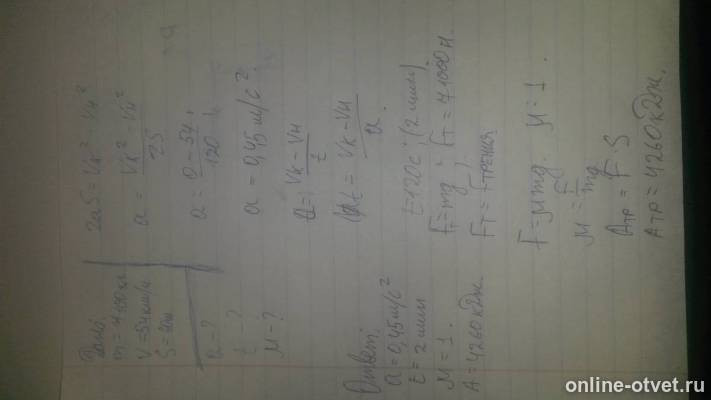 Дано:
V = 54 км/ч
a - ?
t - ?
μ - ?
2aS = Vк² - Vн²
a = Vк² - Vн² / 2S
a = 0 - 54 / 120
a = 0,45 м/с²
Vк - Vн / t
t = Vк - Vн / a
t = 120 с; (2 мин)
Fт = mg; Fт = 71000 Н.
Fт = Fтрения
F = μmg. μ = 1.
μ = F / mg
Aтр = F S
Aтр = 4260 кДж.
Ответ:
a = 0,45 м/с²
t = 2 мин
μ = 1.
A = 4260 кДж.
online-otvet.ru